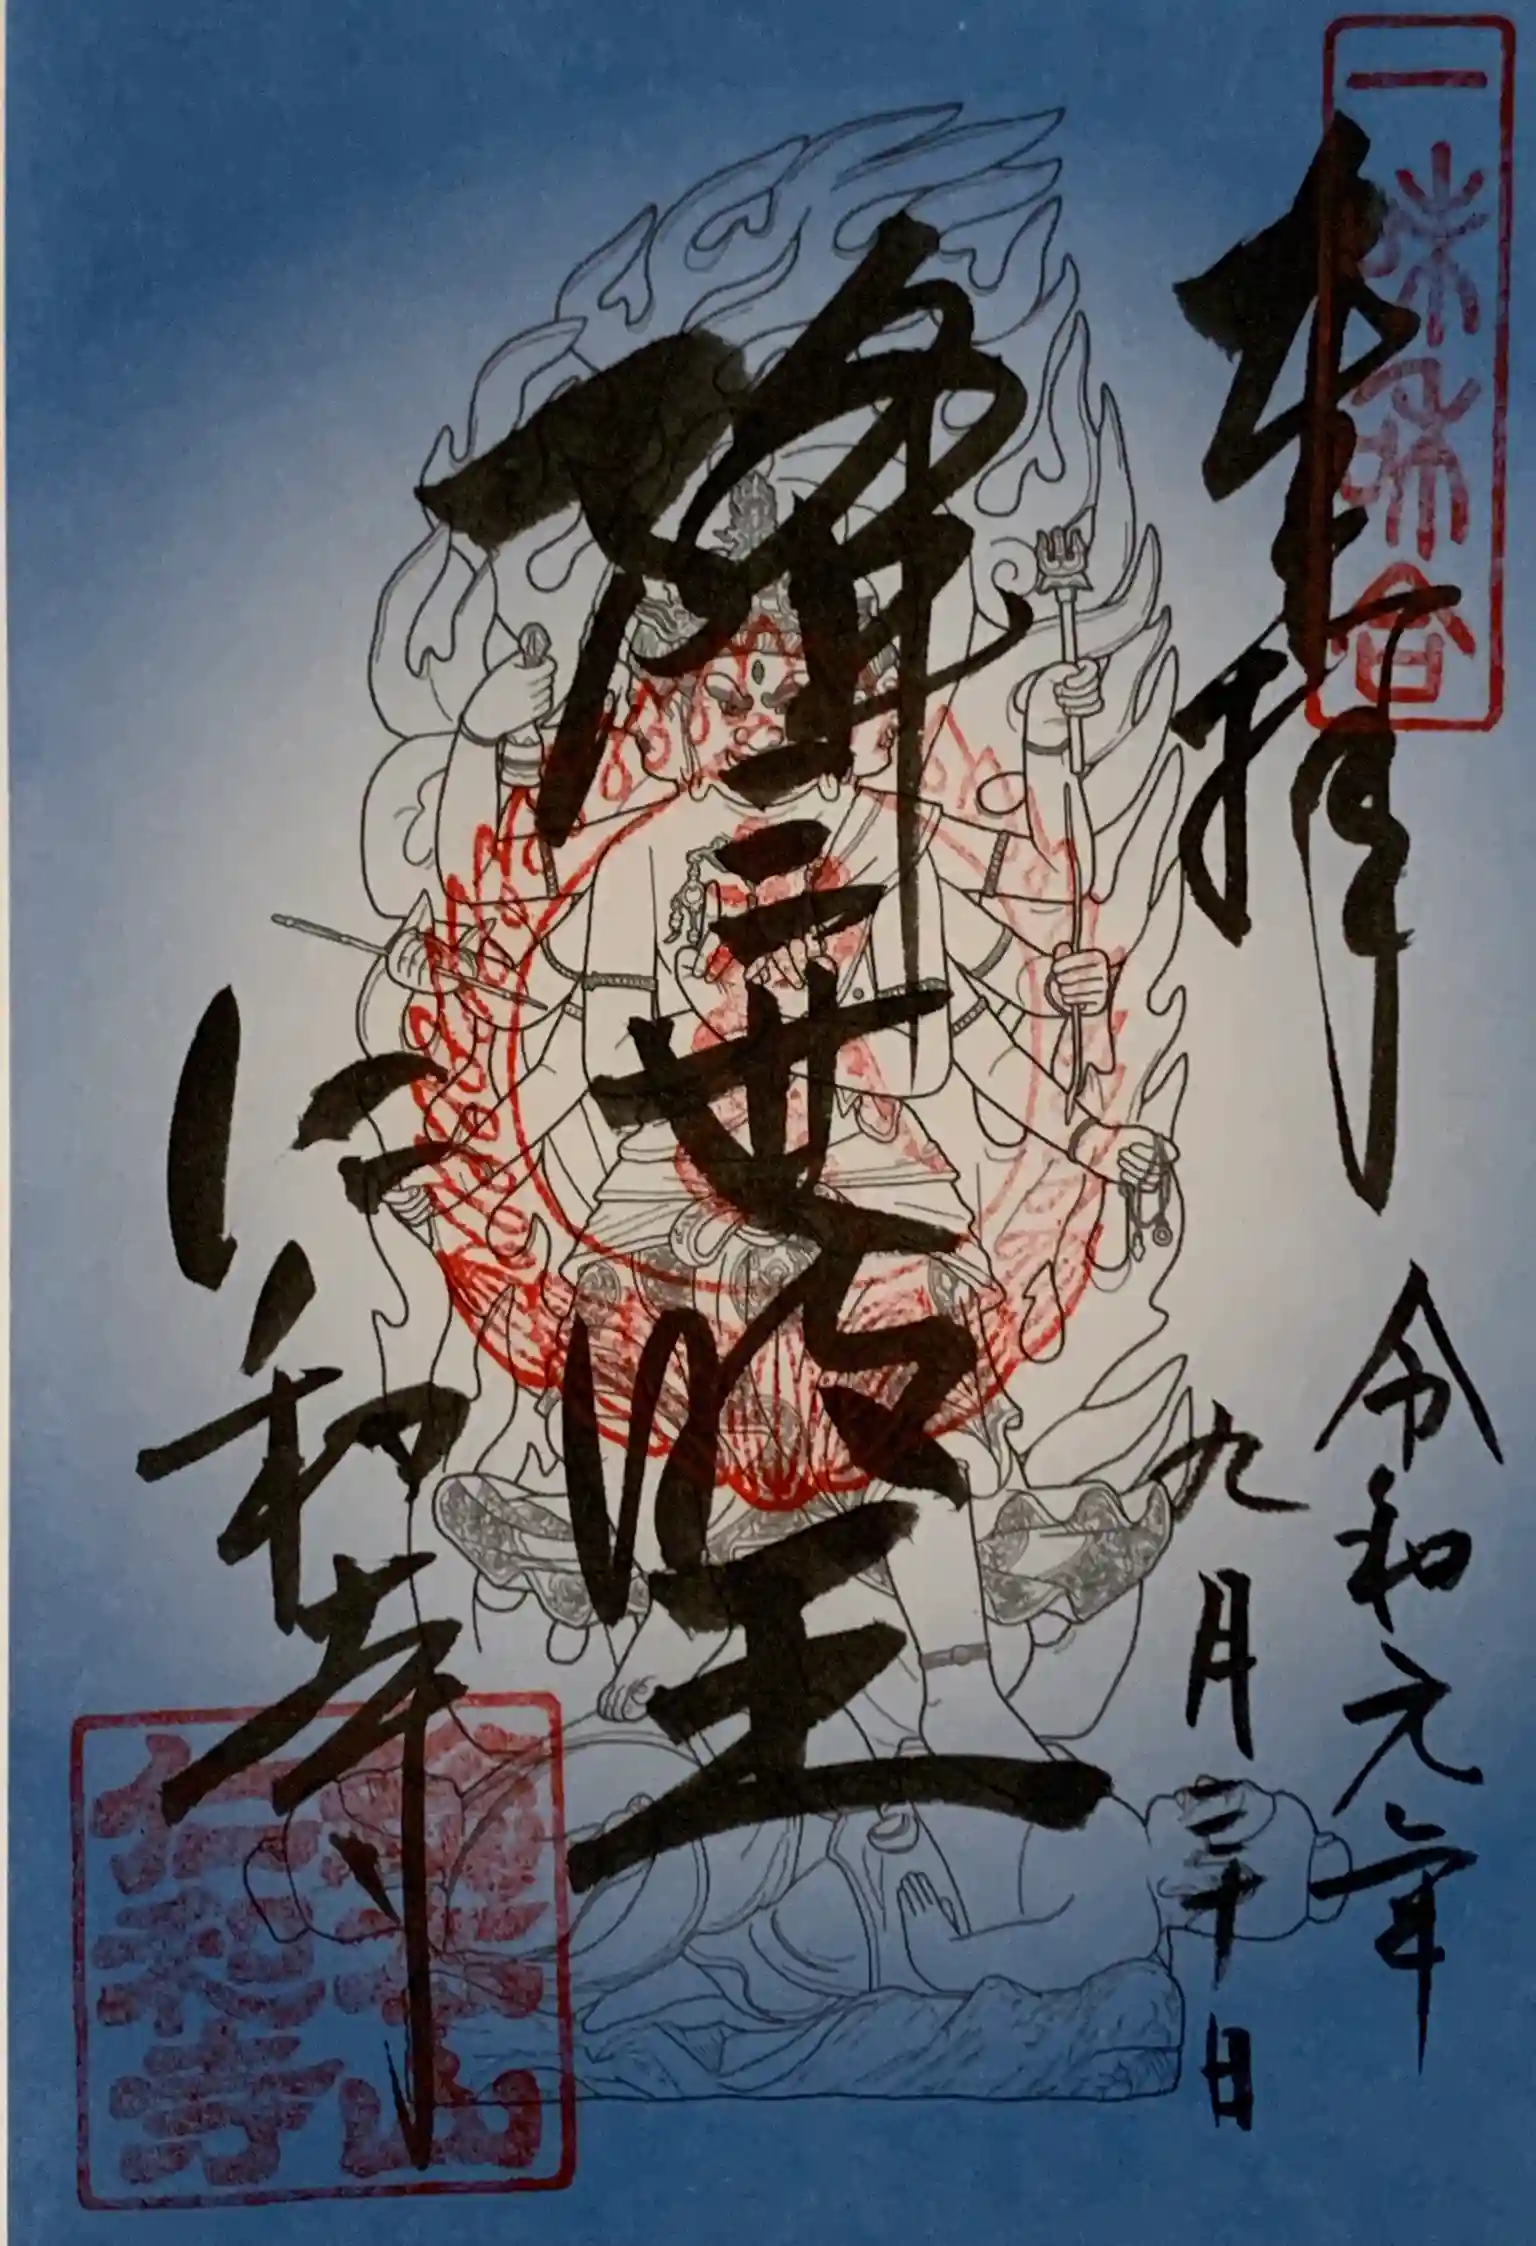 一味和合
奉拝
令和元年
九月三十日
降三世明王
仁和寺
仁和寺